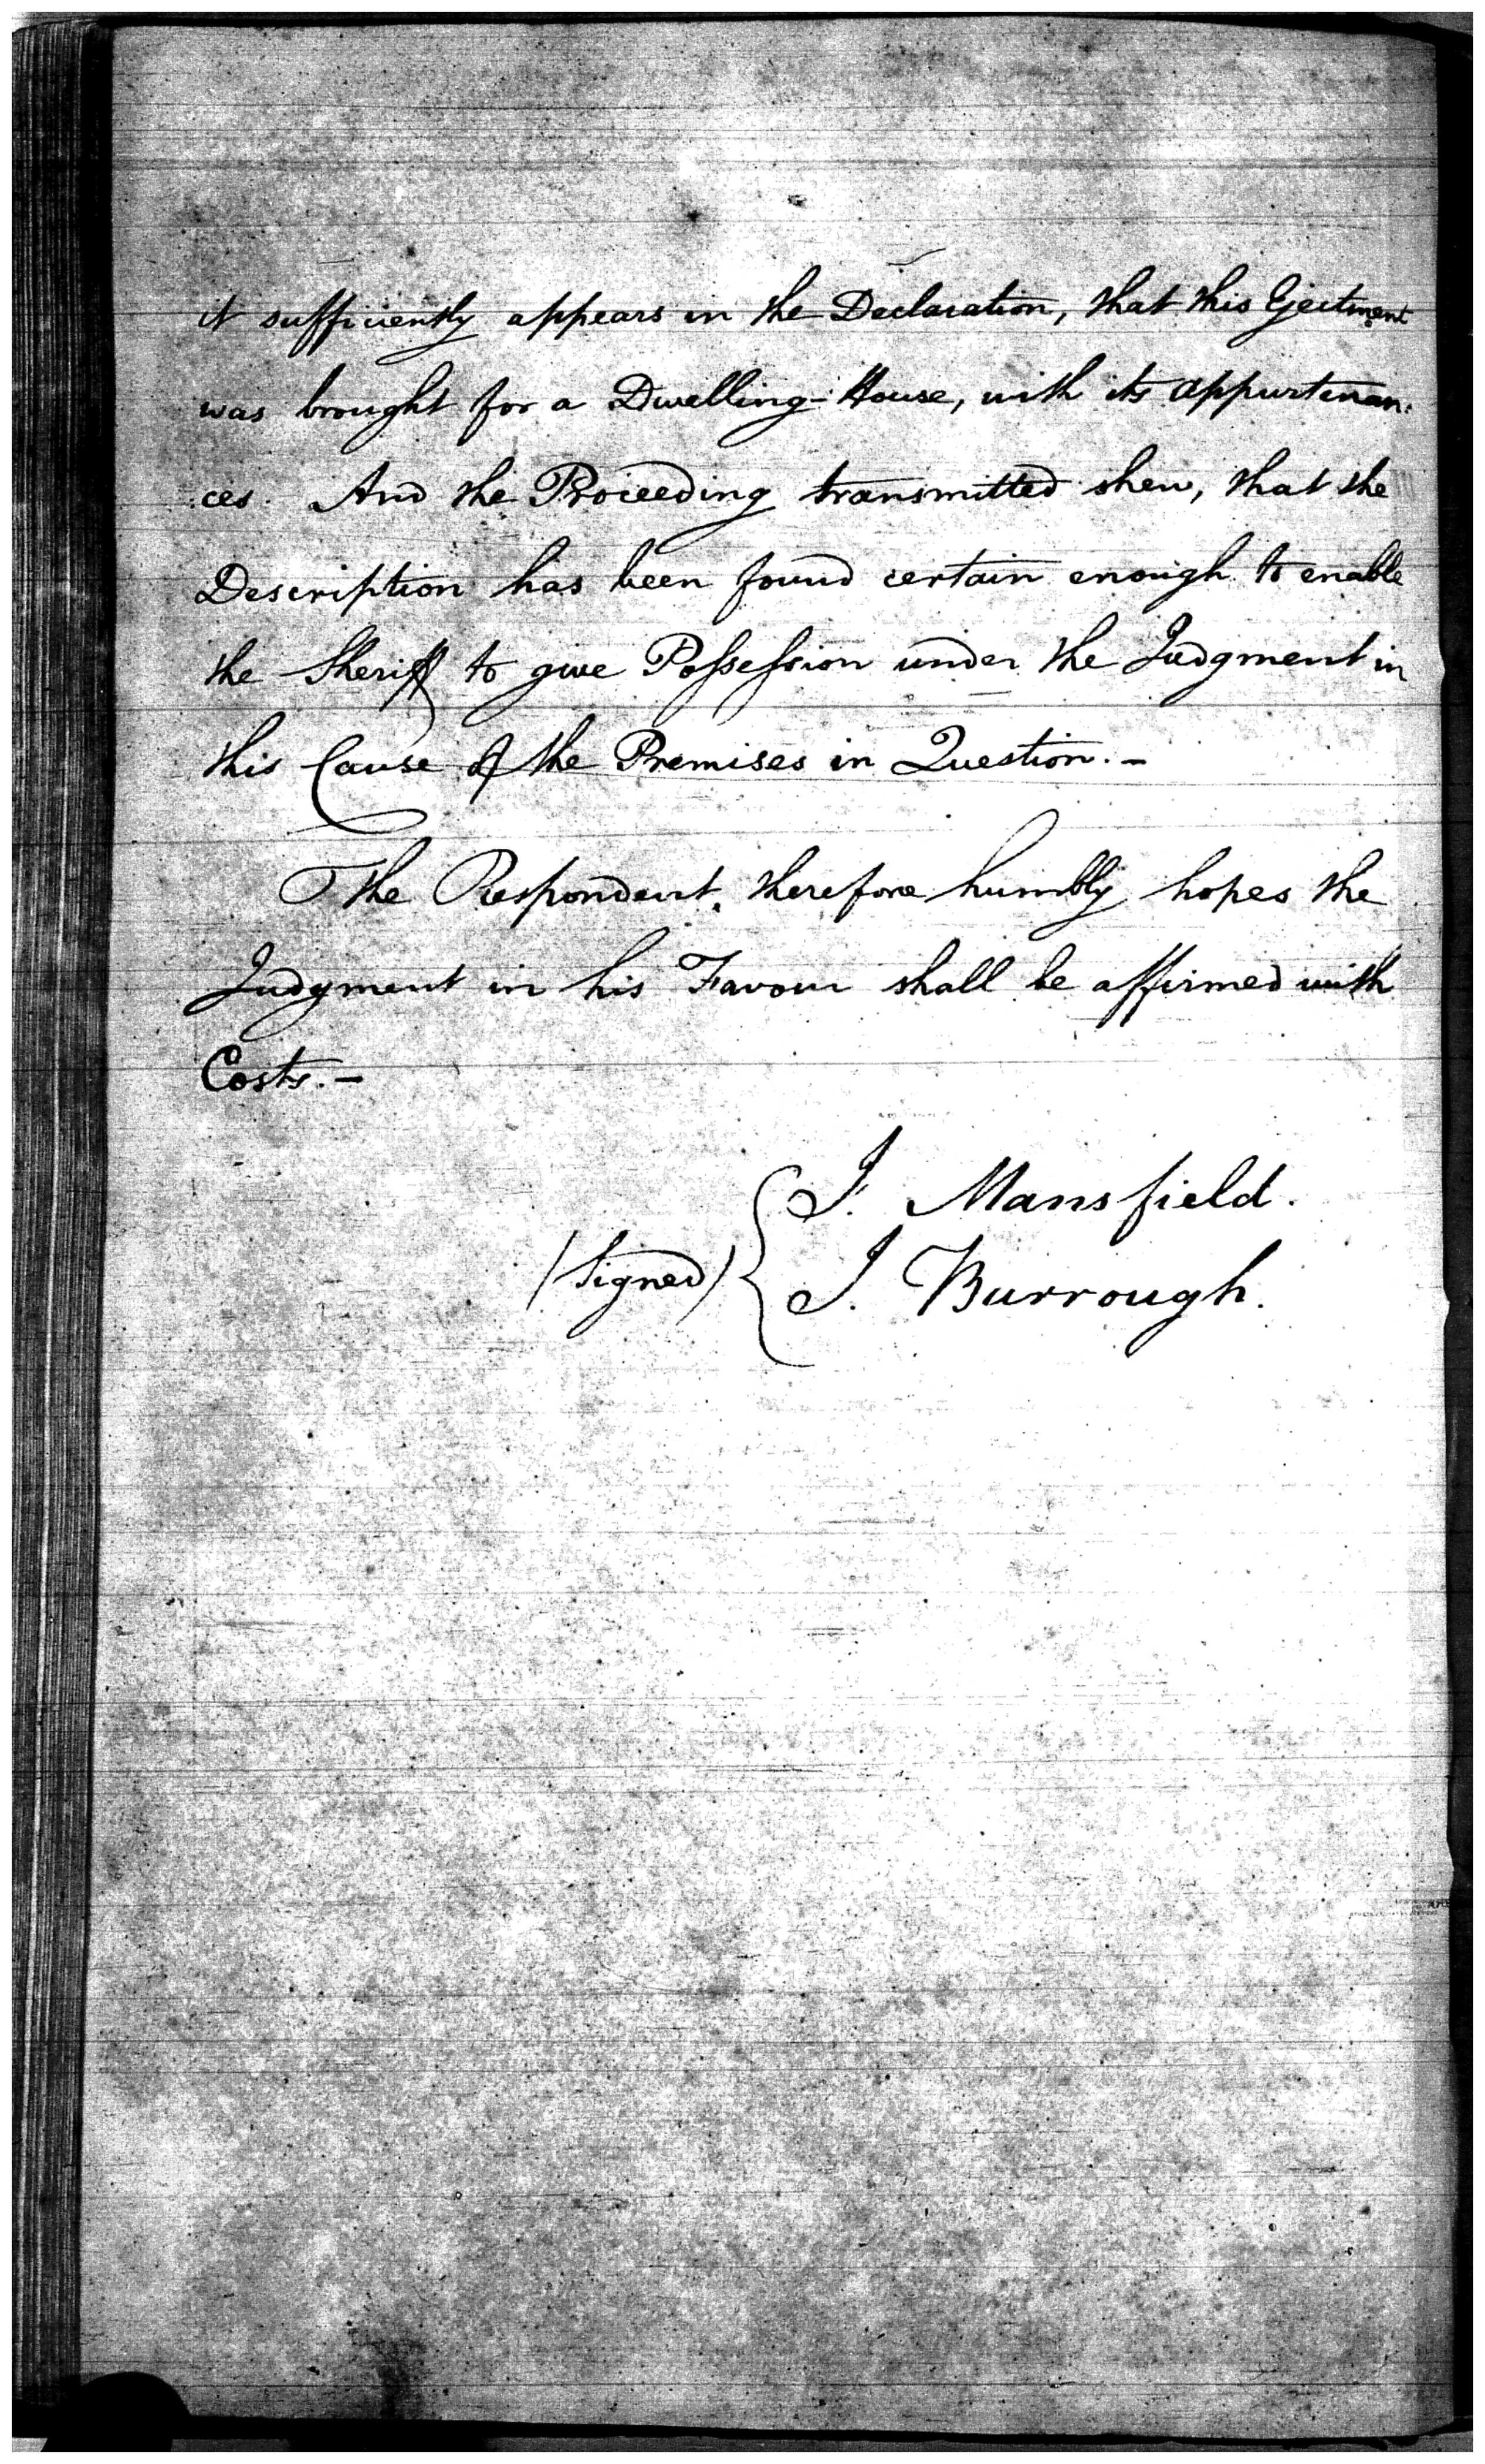 it sufficiently appears in the Declaration, that this Ejectment
was brought for a Dwelling-House, with its appurtenan:
:ces. And the Proceeding transmitted shew, that the
Description has been found certain enough to enable
the Sheriff to give Possession under the Judgment in
this Cause of the Premises in Question. -
The Respondent, therefore humbly hopes the
Judgment in his Favour shall be affirmed with
Costs. -
J. Mansfield.
(Signed)
J. Burrough.